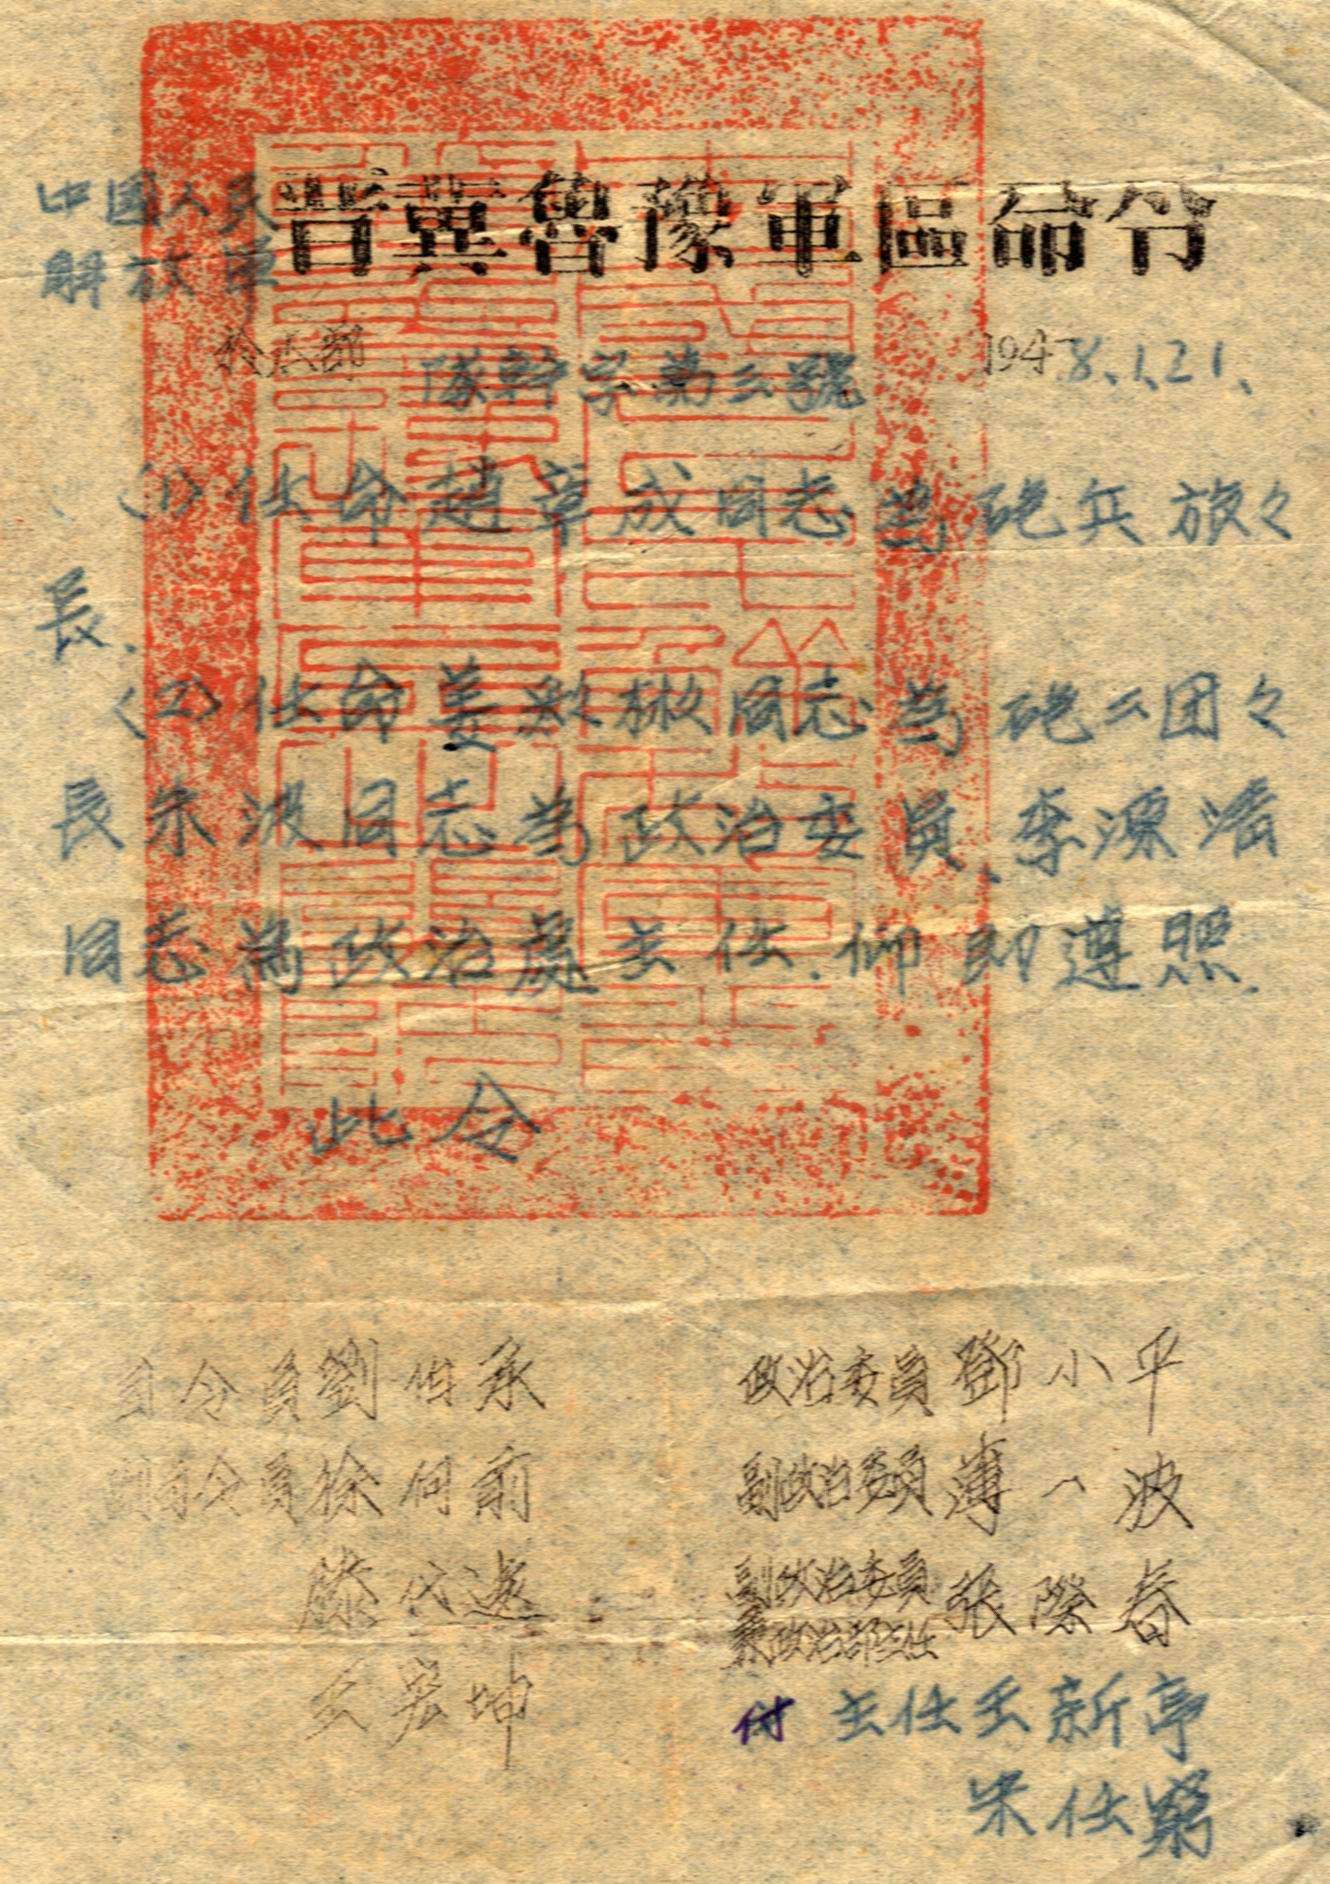 中国人民
解放軍
晋冀魯豫軍區命令
隊幹字第三號
1948.1.21.
(1)任命趙章成同志為砲兵旅々
長.
(2)任命姜 同志為砲二团々
長朱波同志為政治委員.李源浩
同志為政治處主任.仰即遵照.
此令
司令員劉伯承
副司令員徐向前
滕代遠
王宏坤
政治委員鄧小平
副政治委員薄一波
副政治委員
兼政治部主任張際春
付主任王新亭
宋任窮